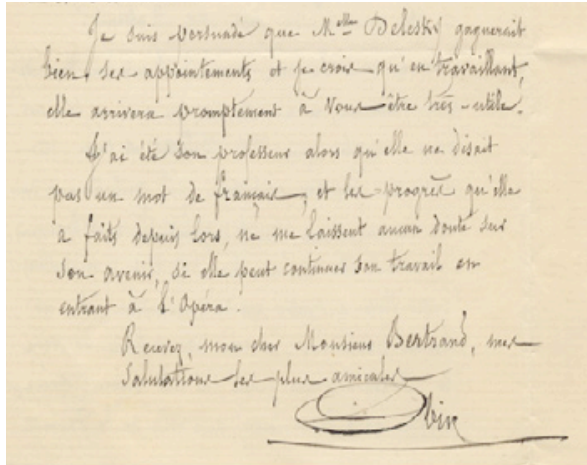 Je suis persuadé que Melle Delesky gagnerait
bien ses appointements et je crois qu'en travaillant,
elle arrivera promptement à vous être très-utile.
J'ai été son professeur alors qu'elle ne disait
pas un mot de français, et les progrès qu'elle
a faits depuis lors, ne me laissent aucun doute sur
son avenir, si elle peut continuer son travail en
entrant à l'Opéra.
Recevez, mon cher Monsieur Bertrand, mes
salutations les plus amicales
Obin